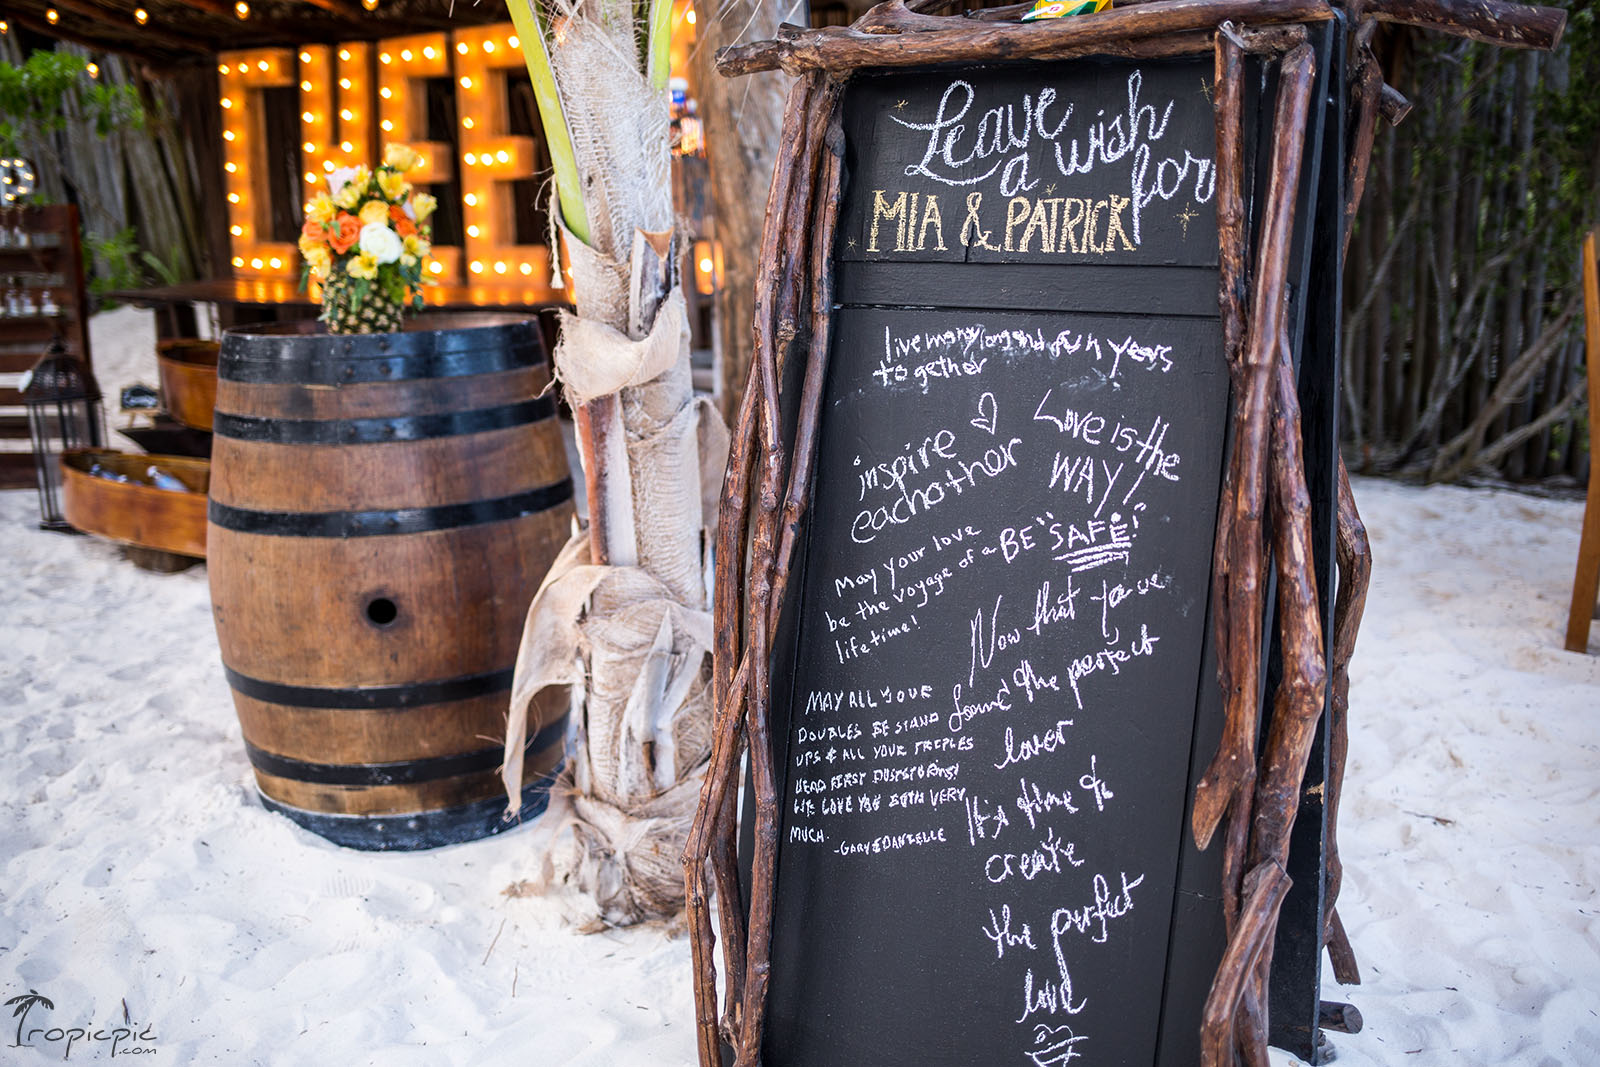 CHEE
Leave
a wish
for
MIA & PATRICK
Live many long and fun years
together
inspire
eachother
Love is the
WAY!
BE "SAFE"
May your love
be the voyage of a
lifetime!
Now that you've
found the perfect
lover
It's time to
create
the perfect
love
MAY ALL YOUR
DOUBLES BE STAND
UPS & ALL YOUR TRIPLES
HEAD FIRST
WE LOVE YOU BOTH VERY
MUCH.
-GARY & DANIELLE
Tropicpic
.com